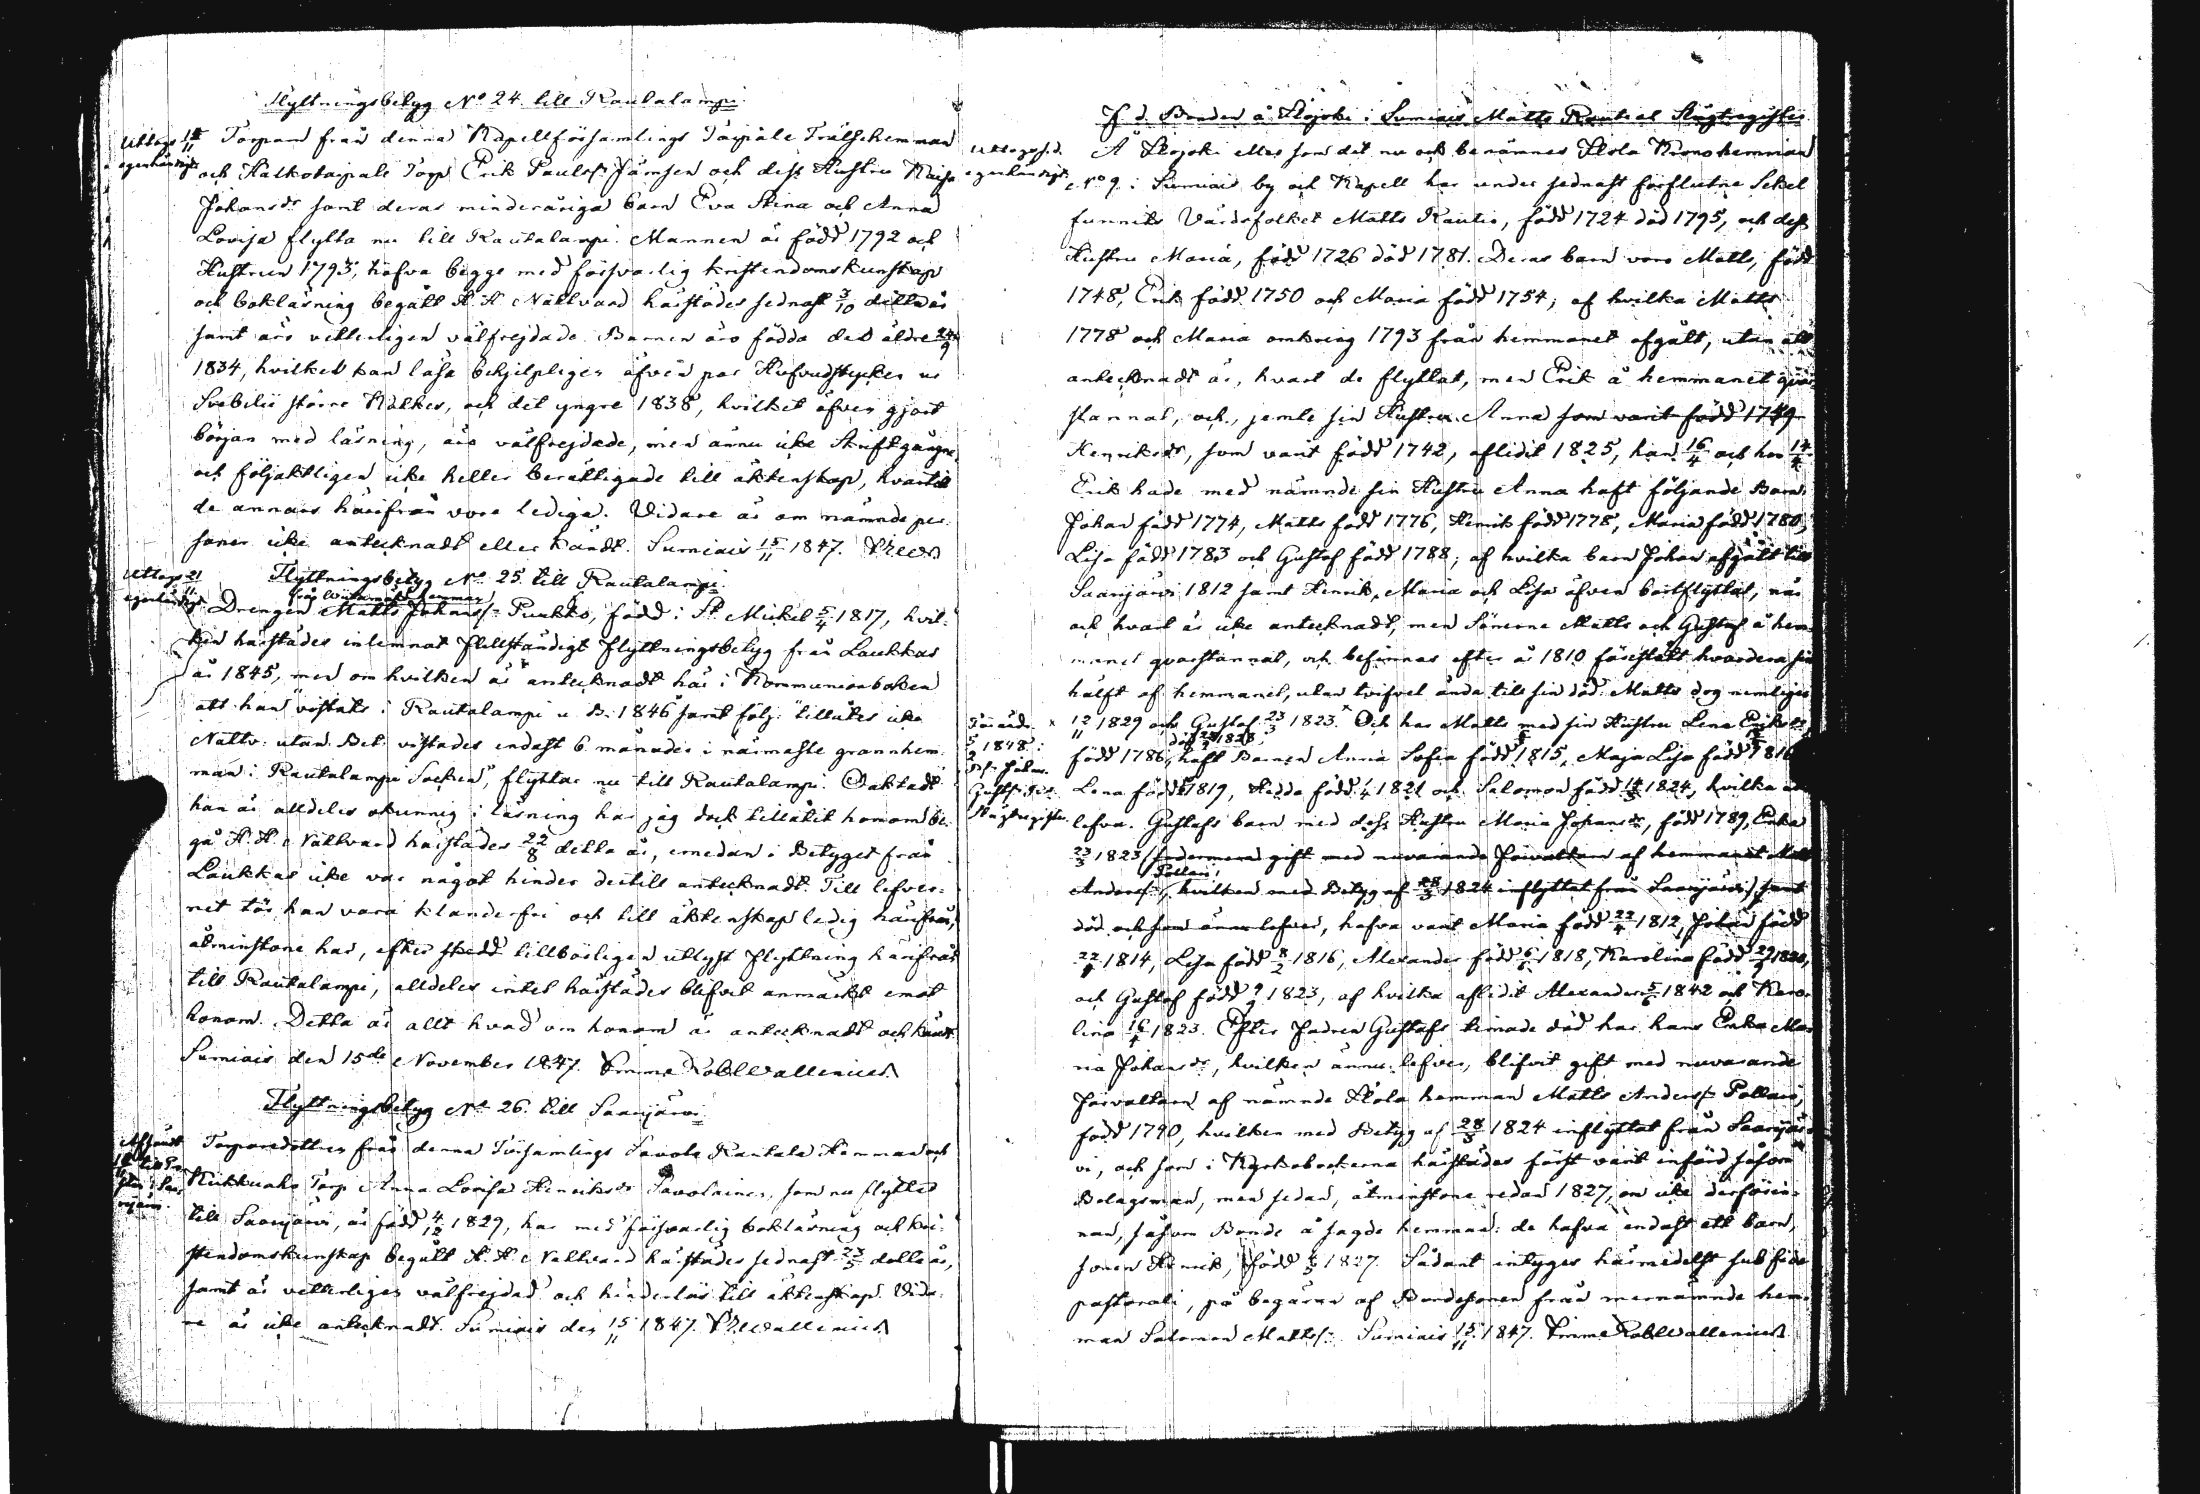 Flyttningsbetyg No 24. till Rautalampi.
Uttogs 15/11
egenhändigt.
Torparen från denna Kapellförsamlings Taipale Frälsehemman
och Halkotaipale Torp Erik Paulss: Jämsen och dess Hustru Kaisa
Johansdr samt deras minderåriga barn Eva Stina och Anna
Lovisa flytta nu till Rautalampi. Mannen är född 1792 och
Hustrun 1793, hafva begge med försvarlig kristendomskunskap
och bokläsning begått H. H. Nattvard härstädes sednast 3/10 detta år
samt äro vetterligen välfrejdade. Barnen äro födda det äldre 24/9
1834, hvilket kan läsa behjelpligen äfven par Hufvudstycken ur
Svebilii större Katkes, och det yngre 1838, hvilket äfven gjort
början med läsning, äro välfrejdade, men ännu icke Skriftgångne
och följaktligen icke heller berättigade till äktenskap, hvartill
de annars härifrån vore lediga. Vidare är om nämnde per-
soner icke antecknadt eller kändt. Sumiais 15/11 1847.
Flyttningsbetyg No 25. till Rautalampi.
Uttogs 21/11
egenhändigt.
Drengen Matts Johanss: Puukko, född i St Michel 5/4 1817, hvil-
ken härstädes inlemnat fullständigt flyttningsbetyg från Laukkas
år 1845, men om hvilken är antecknadt här i Kommunionboken
"att han vistats i Rautalampi u. B. 1846 samt följ. tillåtes icke
Nattv. utan Bet. vistades endast 6 månader i närmaste grannhem-
man i Rautalampi Socken", flyttar nu till Rautalampi. Oaktadt
han är alldeles okunnig i läsning har jag dock tillåtit honom be-
gå H. H. Nattvard härstädes 22/8 detta år, emedan i Betyget från
Laukkas icke var något hinder dertill antecknadt. Till lefver-
net tör han vara klanderfri och till äktenskap ledig härifrån,
åtminstone har, efter skedd tillbörligen utlyst flyttning härifrån
till Rautalampi, alldeles intet härstädes blifvit anmärkt emot
honom. Detta är allt hvad om honom är antecknadt och kändt.
Sumiais den 15de November 1847. Wallenius
Flyttningsbetyg No 26. till Saarijärvi
Torparedottren från denna Församlings Savola Rautala Hemman och
Kukkuaho Torp Anna Lovisa Henriksdr Savolainen, som nu flyttar
till Saarijärvi, är född 4/12 1829, har med försvarlig bokläsning och kri-
stendomskunskap begått H. H. Nattvard härstädes sednast 23/5 detta år,
samt är vetterligen välfrejdad och hinderlös till äktenskap. Vida-
re är icke antecknadt. Sumiais den 15/11 1847. Wallenius
F. d. Bonden å Slojoki i Sumiais Matts Rauties Slägtregister.
Uttogs s. d.
egenhändigt.
Å Slojoki eller som det nu ock benämnes Skola Kronohemman
No 9. i Sumiais by och Kapell har under sednast förflutne Sekel
funnits Värdsfolket Matts Rautio, född 1724 död 1795, och dess
Hustru Maria, född 1726 död 1781. Deras barn voro Matts, född
1748, Erik född 1750 och Maria född 1754; af hvilka Matts
1778 och Maria omkring 1793 från hemmanet afgått, utan att
antecknadt är, hvart de flyttat, men Erik å hemmanet qvar-
stannat, och, jemte sin Hustru Anna som varit född 1749
Henriksdr, som varit född 1742, aflidit 1825, han 16/4 och hon 14/4.
Erik hade med nämnde sin Hustru Anna haft följande Barn:
Johan född 1774, Matts född 1776, Henrik född 1778, Maria född 1780,
Lisa född 1783 och Gustaf född 1788; af hvilka barn Johan afgått till
Saarijärvi 1812 samt Henrik, Maria och Lisa äfven bortflyttat, när
och hvart är icke antecknadt, men Sönerne Matts och Gustaf å hem-
manet qvarstannat, och befinnas efter år 1810 förestått hvardera sin
hälft af hemmanet, utan tvifvel ända till sin död. Matts dog nemligen
12/11 1829 och Gustaf 23/3 1823. Och har Matts med sin Hustru Lena Eriksdr
född 1786, haft Barnen Anna Sofia född 1815, Maja Lisa född 1816
Lena född 1819, Hedda född 1821 och Salomon född 14/3 1824, hvilka
lefva. Gustafs barn med dess Hustru Maria Johansdr, född 1789, Enka
23/3 1823 (sedermera gift med nuvarande Förvaltaren af hemmanet Matts
Pollari,
Anderss:, hvilken med Betyg af 28/3 1824 inflyttat från Saarijärvi) samt
död och som ännu lefver, hafva varit Maria född 22/4 1812, Johan född
1814, Lisa född 8/2 1816, Alexander född 6/6 1818, Karolina född
och Gustaf född 1823, af hvilka aflidit Alexander 5/6 1842 och Karo-
lina 16/4 1823. Efter Fadren Gustafs timade död har hans Enka Ma-
ria Johansdr, hvilken ännu lefver, blifvit gift med nuvarande
Förvaltaren af nämnde Skola hemman Matts Anderss: Pollari,
född 1790, hvilken med Betyg af 28/3 1824 inflyttat från Saarijär-
vi, och som i Kyrkobockerna härstädes först varit införd såsom
Bolagsman, men sedan, åtminstone redan 1827, om icke derförin-
nan, såsom Bonde å sagde hemman: de hafva endast ett barn,
sonen Henrik, född 1827. Sådant intygar härmedelst sub fide
pastorali, på begäran af Bondesonen från mernämnde hem-
man Salomon Mattss: Sumiais 15/11 1847. Wallenius